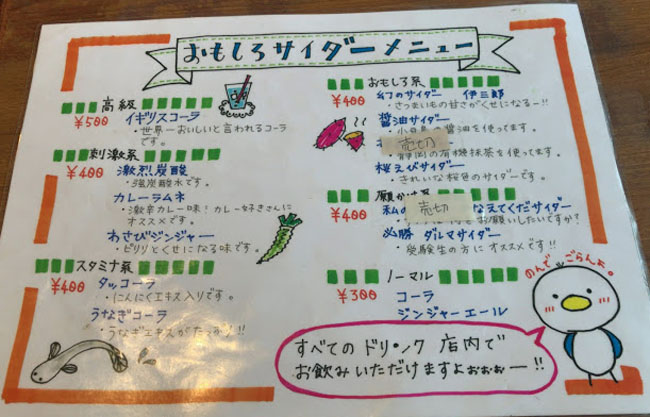 おもしろサイダーメニュー
高級
¥500
イギリスコーラ
・世界一おいしいと言われるコーラ
です。
刺激系
¥400
激烈炭酸
・強炭酸水です。
カレーラムネ
・激辛カレー味！カレー好きさんに
オススメです。
わさびジンジャー
・ピリリとくせになる味です。
スタミナ系
¥400
タッコーラ
・にんにくエキス入りです。
うなぎコーラ
・うなぎエキスがたっぷり!!
おもしろ系
¥400
幻のサイダー 伊三郎
・さつまいもの甘さがくせになるー!!
醤油サイダー
の醤油を使ってます。
売切
・静岡の有機抹茶を使ってます。
桜えびサイダー
・きれいな桜色のサイダーです。
願かけ系
¥400
私の 売切 なえてくだサイダー
お願いしたいですか?
必勝 ダルマサイダー
・受験生の方にオススメです!!
ノーマル
¥300
コーラ
ジンジャーエール
のんでごらんよ。
すべてのドリンク店内で
お飲みいただけますよぉぉぉー!!